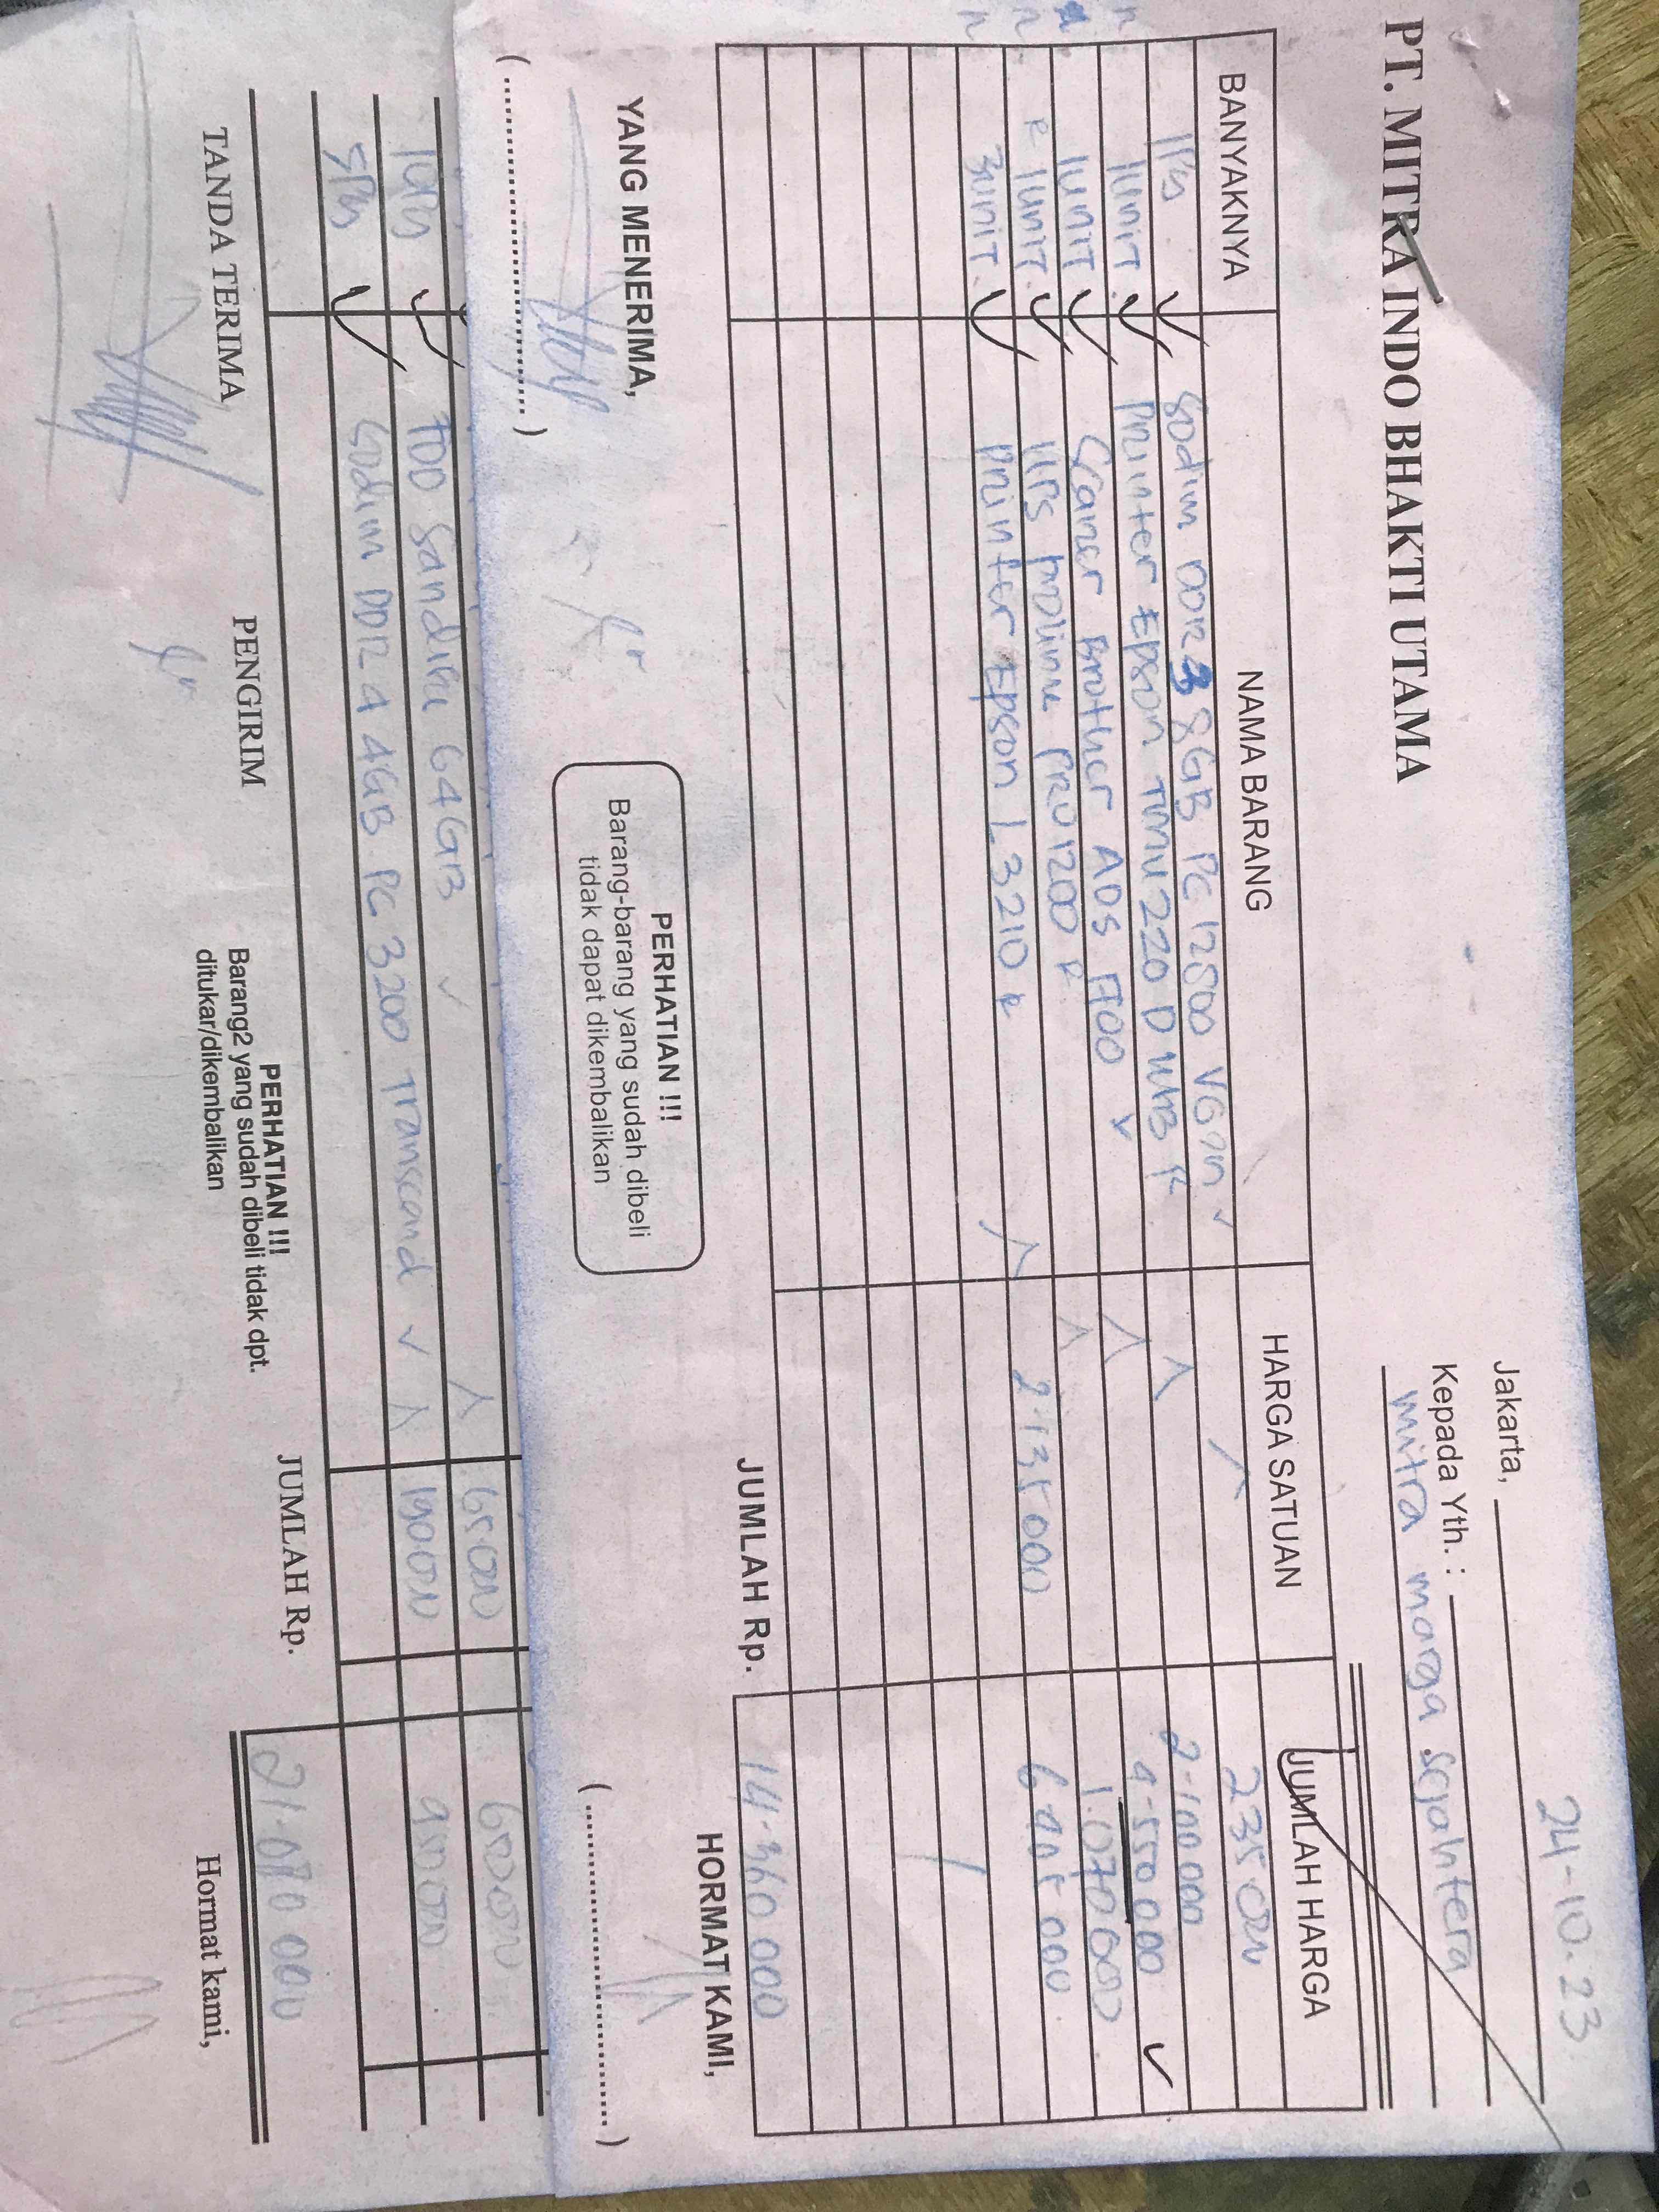 PT. MITRA INDO BHAKTI UTAMA
24-10.23
Jakarta,
Kepada Yth. :
Mitra marga Sejahtera
BANYAKNYA NAMA BARANG HARGA SATUAN JUMLAH HARGA
1Pcs Sodim DDR3 8GB PC 12800 VGen 235000
1unit Printer Epson TMU220 D 2.100000
1unit Scaner Brother ADS 4.550000
1unit UPS Prolink PRO1200 1.070000
3unit Printer Epson L3210 2.135000 6.405000
JUMLAH Rp. 14.360000
YANG MENERIMA,
HORMAT KAMI,
PERHATIAN !!!
Barang-barang yang sudah dibeli
tidak dapat dikembalikan
10Pcs FDD Sandisk 64GB 65000 650000
5Pcs Sodim DDR 4 4GB PC 3200 Transcend 190000 950000
JUMLAH Rp. 21.070000
TANDA TERIMA
PENGIRIM
PERHATIAN !!!
Barang2 yang sudah dibeli tidak dpt.
ditukar/dikembalikan
Hormat kami,